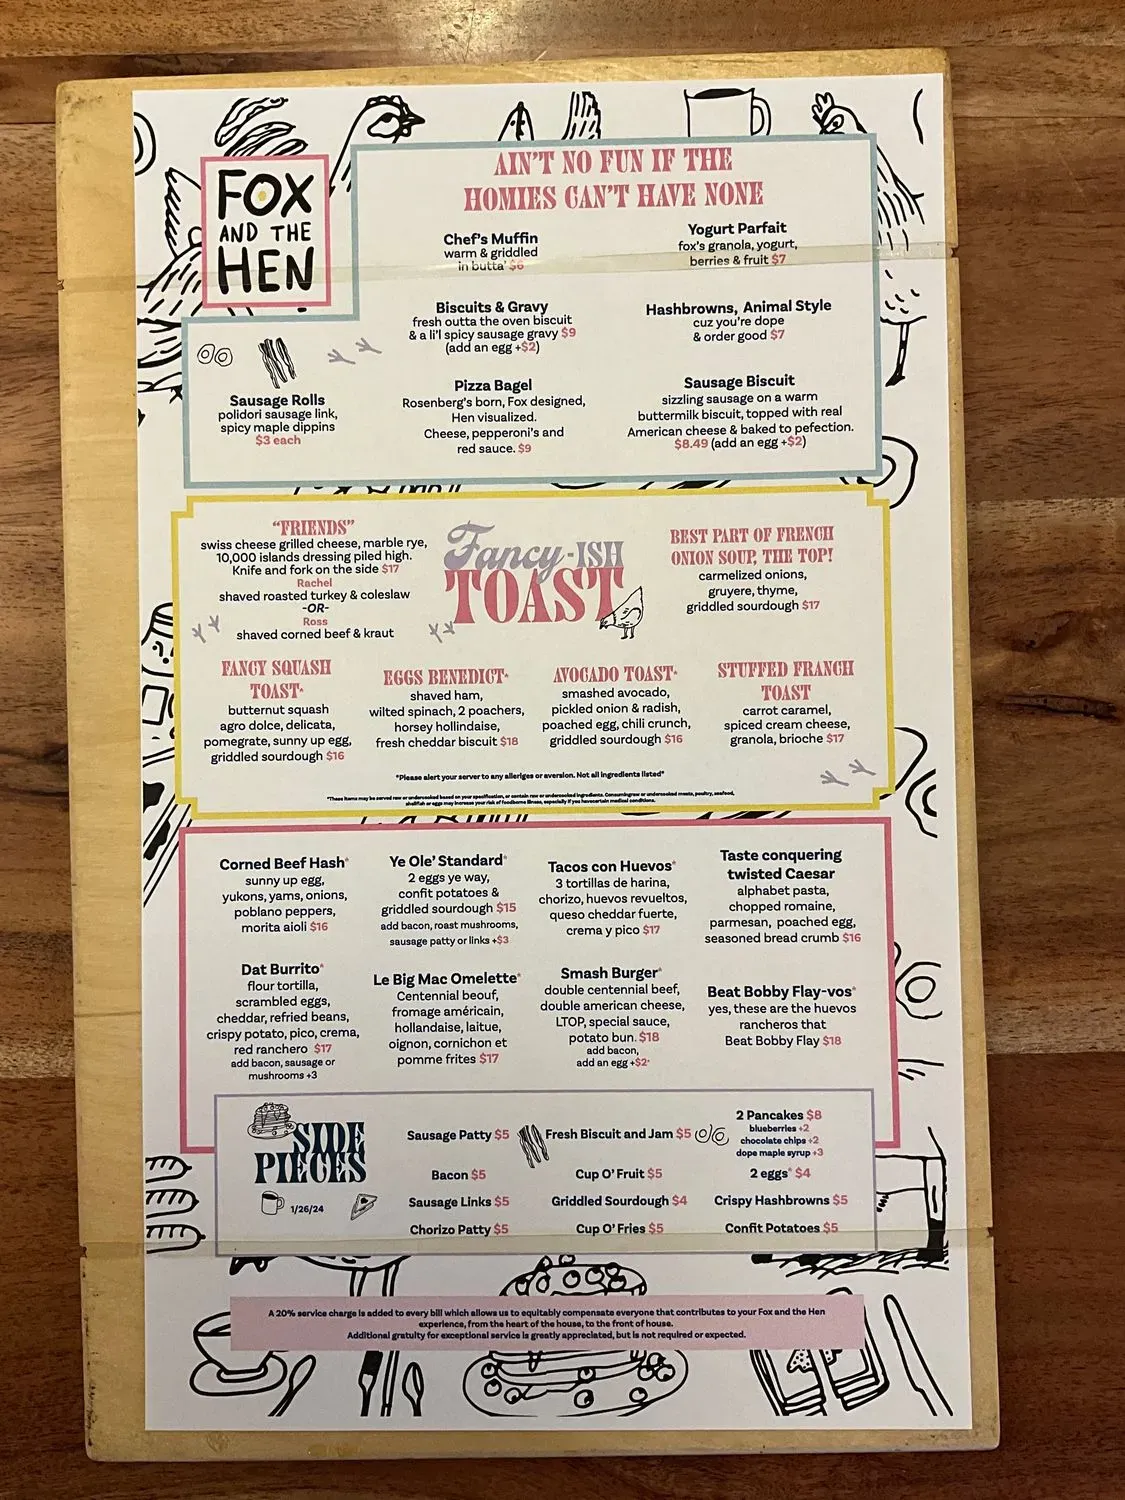 FOX
AND THE
HEN
AIN'T NO FUN IF THE
HOMIES CAN'T HAVE NONE
Chef's Muffin
warm & griddled
in butta' $6
Yogurt Parfait
fox's granola, yogurt,
berries & fruit $7
Biscuits & Gravy
fresh outta the oven biscuit
& a li'l spicy sausage gravy $9
(add an egg +$2)
Hashbrowns, Animal Style
cuz you're dope
& order good $7
Sausage Rolls
polidori sausage link,
spicy maple dippins
$3 each
Pizza Bagel
Rosenberg's born, Fox designed,
Hen visualized.
Cheese, pepperoni's and
red sauce. $9
Sausage Biscuit
sizzling sausage on a warm
buttermilk biscuit, topped with real
American cheese & baked to pefection.
$8.49 (add an egg +$2)
"FRIENDS"
swiss cheese grilled cheese, marble rye,
10,000 islands dressing piled high.
Knife and fork on the side $17
Rachel
shaved roasted turkey & coleslaw
-OR-
Ross
shaved corned beef & kraut
Fancy-ISH
TOAST
BEST PART OF FRENCH
ONION SOUP, THE TOP!
carmelized onions,
gruyere, thyme,
griddled sourdough $17
FANCY SQUASH
TOAST*
butternut squash
agro dolce, delicata,
pomegrate, sunny up egg,
griddled sourdough $16
EGGS BENEDICT*
shaved ham,
wilted spinach, 2 poachers,
horsey hollindaise,
fresh cheddar biscuit $18
AVOCADO TOAST*
smashed avocado,
pickled onion & radish,
poached egg, chili crunch,
griddled sourdough $16
STUFFED FRANCH
TOAST
carrot caramel,
spiced cream cheese,
granola, brioche $17
*Please alert your server to any alleriges or aversion. Not all ingredients listed*
*These items may be served raw or undercooked based on your specification, or contain raw or undercooked ingredients. Consumingraw or undercooked meats, poultry, seafood,
shellfish or eggs may increase your risk of foodborne illness, especially if you havecertain medical conditions.
Corned Beef Hash*
sunny up egg,
yukons, yams, onions,
poblano peppers,
morita aioli $16
Ye Ole' Standard*
2 eggs ye way,
confit potatoes &
griddled sourdough $15
add bacon, roast mushrooms,
sausage patty or links +$3
Tacos con Huevos*
3 tortillas de harina,
chorizo, huevos revueltos,
queso cheddar fuerte,
crema y pico $17
Taste conquering
twisted Caesar
alphabet pasta,
chopped romaine,
parmesan, poached egg,
seasoned bread crumb $16
Dat Burrito*
flour tortilla,
scrambled eggs,
cheddar, refried beans,
crispy potato, pico, crema,
red ranchero $17
add bacon, sausage or
mushrooms +3
Le Big Mac Omelette*
Centennial beouf,
fromage américain,
hollandaise, laitue,
oignon, cornichon et
pomme frites $17
Smash Burger*
double centennial beef,
double american cheese,
LTOP, special sauce,
potato bun. $18
add bacon,
add an egg +$2*
Beat Bobby Flay-vos*
yes, these are the huevos
rancheros that
Beat Bobby Flay $18
SIDE
PIECES
1/26/24
Sausage Patty $5
Bacon $5
Sausage Links $5
Chorizo Patty $5
Fresh Biscuit and Jam $5
Cup O' Fruit $5
Griddled Sourdough $4
Cup O' Fries $5
2 Pancakes $8
blueberries +2
chocolate chips +2
dope maple syrup +3
2 eggs* $4
Crispy Hashbrowns $5
Confit Potatoes $5
A 20% service charge is added to every bill which allows us to equitably compensate everyone that contributes to your Fox and the Hen
experience, from the heart of the house, to the front of house.
Additional gratuity for exceptional service is greatly appreciated, but is not required or expected.